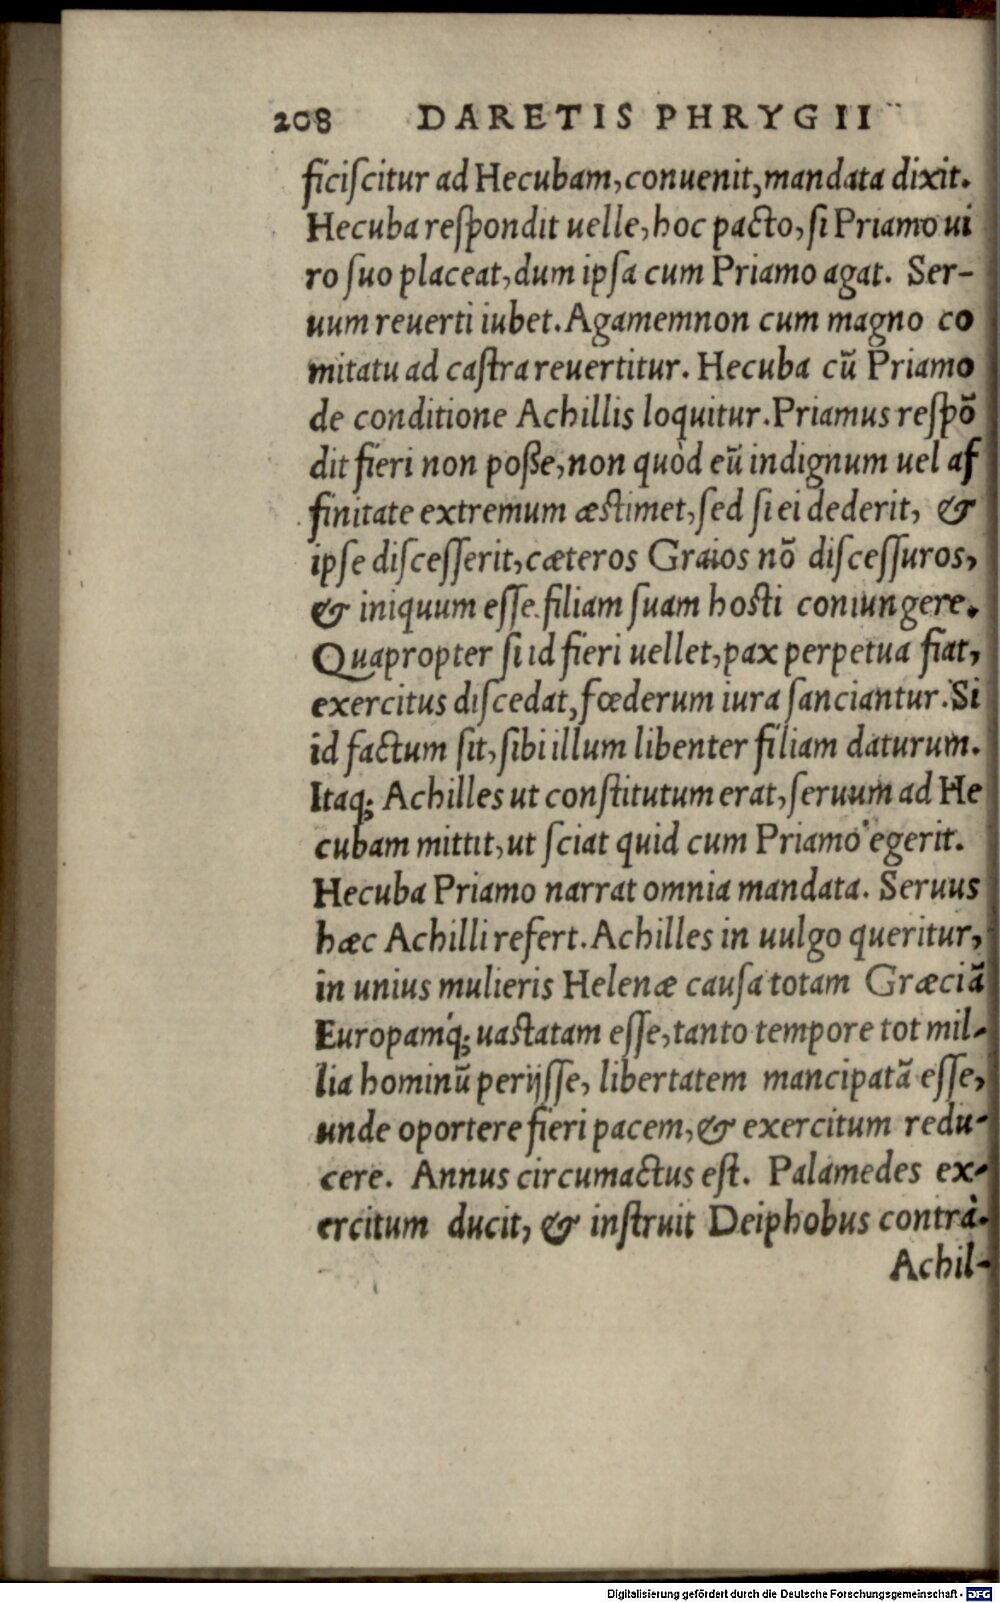 208 DARETIS PHRYGII
ficiſcitur ad Hecubam, conuenit, mandata dixit.
Hecuba reſpondit uelle, hoc pacto, ſi Priamo ui
ro ſuo placeat, dum ipſa cum Priamo agat. Ser-
uum reuerti iubet. Agamemnon cum magno co
mitatu ad caſtra reuertitur. Hecuba cū Priamo
de conditione Achillis loquitur. Priamus reſpō
dit fieri non poſſe, non quòd eū indignum uel af
finitate extremum æstimet, ſed ſi ei dederit, &
ipſe diſceſſerit, cæteros Graios nō diſceſſuros,
& iniquum eſſe filiam ſuam hosti coniungere.
Quapropter ſi id fieri uellet, pax perpetua fiat,
exercitus diſcedat, fœderum iura ſanciantur. Si
id factum ſit, ſibi illum libenter filiam daturum.
Itaq; Achilles ut conſtitutum erat, ſeruum ad He
cubam mittit, ut ſciat quid cum Priamo egerit.
Hecuba Priamo narrat omnia mandata. Seruus
hæc Achilli refert. Achilles in uulgo queritur,
in unius mulieris Helenæ cauſa totam Græciā
Europamq́; uastatam eſſe, tanto tempore tot mil-
lia hominū perijſſe, libertatem mancipatā eſſe,
unde oportere fieri pacem, & exercitum redu-
cere. Annus circumactus eſt. Palamedes ex-
ercitum ducit, & inſtruit Deiphobus contrà.
Achil-
Digitalisierung gefördert durch die Deutsche Forschungsgemeinschaft - DFG